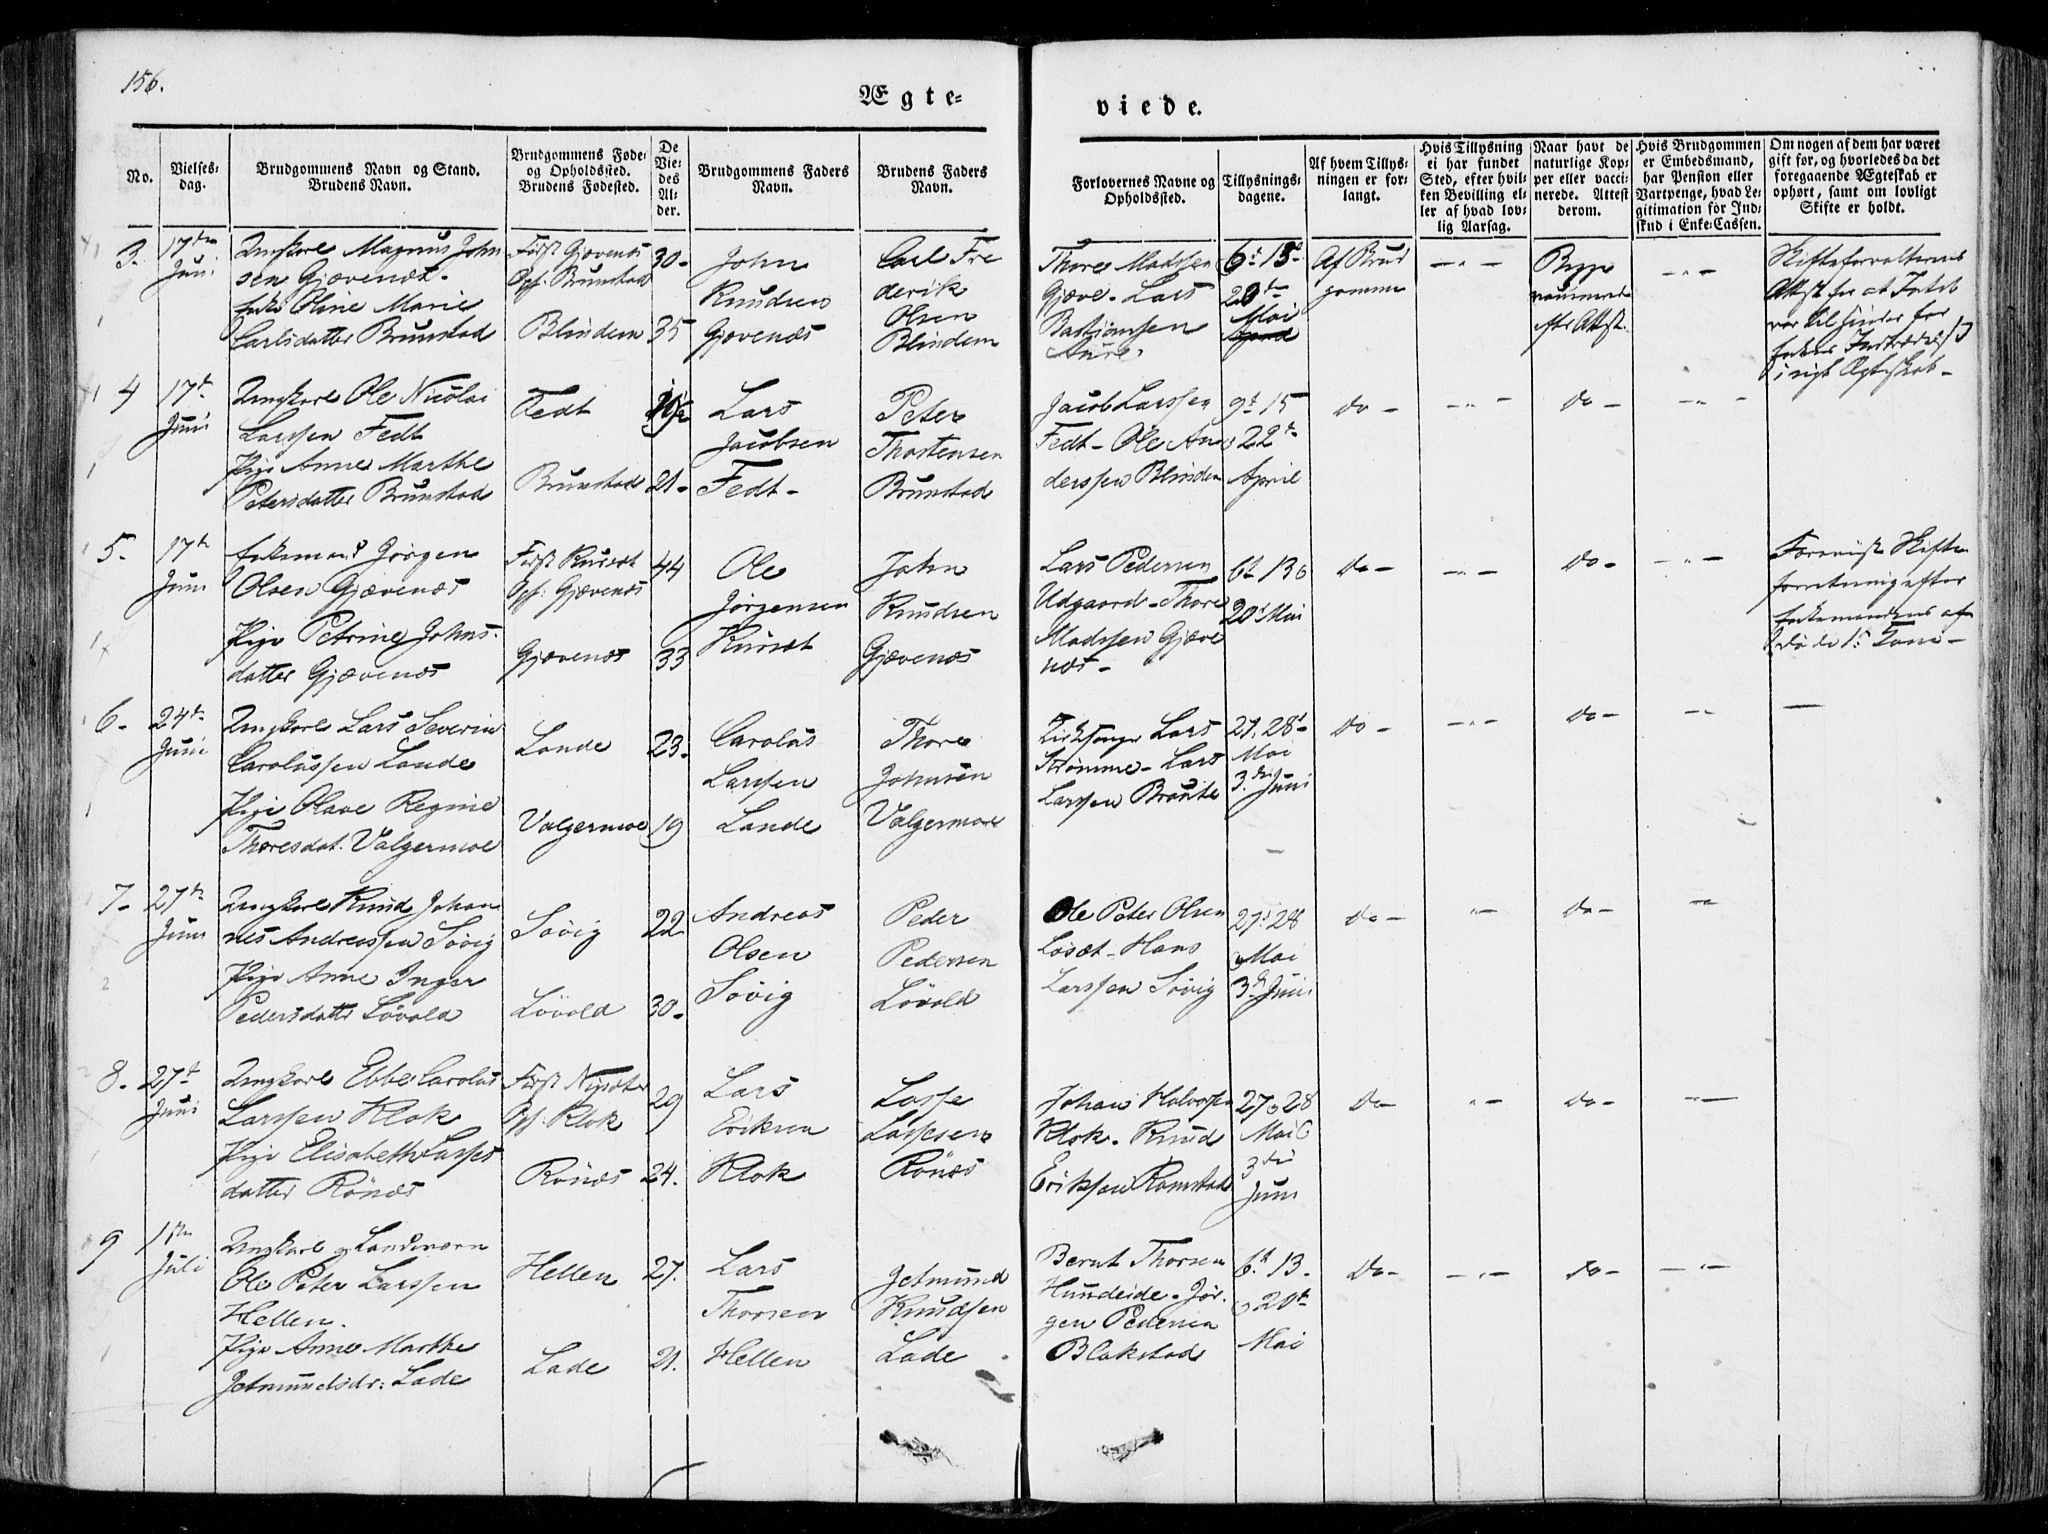 156.
Ægte-
viede.
No.
Vielses-
dag.
Brudgommens Navn og Stand.
Brudens Navn.
Brudgommens Føde-
og Opholdssted.
Brudens Fødested.
De
Vie-
des
Al-
der.
Brudgommens Faders
Navn.
Brudens Faders
Navn.
Forlovernes Navne og
Opholdssted.
Tillysnings-
dagene.
Af hvem Tillys-
ningen er for-
langt.
Hvis Tillysning
ei har fundet
Sted, efter hvil-
ken Bevilling el-
ler af hvad lov-
lig Aarsag.
Naar havt de
naturlige Kop-
per eller vacci-
nerede. Attest
derom.
Hvis Brudgommen
er Embedsmand,
har Pension eller
Vartpenge, hvad Le-
gitimation for Ind-
skud i Enke-Cassen.
Om nogen af dem har været
gift før, og hvorledes da det
foregaaende Ægteskab er
ophørt, samt om lovligt
Skifte er holdt.
3.
17de
Juni
Ungkarl Magnus John
sen Gjævenæs.
Enke Oline Marie
Carlsdatter Brunstad
Født Gjævenæs
Opf: Brunstad
Blindem
30-
35
John
Knudsen
Gjævenæs
Carl Fre
derik
Olsen
Blindem
Thore Madssen
Gjæve- Lars
Bastjanssen
Aure.
6t 13d
20de
Mai
April
Af Brud
gomme
- " -
- " -
Skifteforvalterens
Attst for at Intet
var til hinder for
Enkens Indtrædelse
i nyt Ægteskab-
4
17de
Juni
Ungkarl Ole Nicolai
Larssen Fedt
Pige Anne Marthe
Petersdatter Brunstad
Fedt
Brunstad
21-
Lars
Jacobsen
Fedt-
Peter
Thostensen
Brunstad
Jacob Larssen
Fedt- Ole An
derssen Blindem
9d 15
22de
April
do -
- " -
do -
- " -
5.
17de
Juni
Enkemand Jørgen
Olsen Gjævenæs
Pige Petrine Johns-
datter Gjævenæs
Født Kursæt
Opf: Gjævenæs
Gjævenæs
44
33
Ole
Jørgensen
Kursæt
John
Knudsen
Gjævenæs
Lars Pedersen
Udgaard- Thore
Madssen Gjæve
næs-
6t 13 o
20d Mai
do -
- " -
do -
- " -
Forevist Skifte
forretning efter
Enkemandens af
døde 1t Kone -
6-
24de
Juni
Ungkarl Lars Severin
Carolussen Lande
Pige Olave Regine
Thoresdat. Valgermoe
Lande
Valgermoe
23-
19
Carolus
Larssen
Lande
Thore
Johnsen
Valgermoe
Kirksanger Lars
Strømme- Lars
Larssen Braute
27. 28d
Mai
3de Juni
do -
- " -
do -
- " -
-
7-
27de
Juni
Ungkarl Knud Johan
nes Andreassen Søvig
Pige Anne Inger
Pedersdatter Løvold
Søvig
Løvold
22
30-
Andreas
Olsen
Søvig
Peder
Pedersen
Løvold
Ole Peter Olsen
Løsæt- Hans
Larssen Søvig
27d 28
Mai
3de Juni
do -
" -
do -
- " -
8-
27de
Juni
Ungkarl Ebbe Carolus
Larssen Klok
Pige Elisabeth Lasses
datter Rönæs
Født Nysæter
Opf. Klok
Rönæs
29
24.
Lars
Eriksen
Klok
Lasse
Lassesen
Rönæs
Johan Halvorsen
Klok- Knud
Eriksen Ramstad
27 o 28
Mai o
3de
Juni
do -
" -
do -
" -
9
1ste
Juli
Ungkarl og Landværn
Ole Peter Larssen
Hellen.
Pige Anne Marthe
Jetmundsdr: Lade
Hellen
Lade
27.
21.
Lars
Thorsen
Hellen
Jetmund
Knudsen
Lade
Bernt Thorsen
Hundeide- Jør-
gen Pedersen
Blakstad
6t 13-
o 20de
Mai
do -
- " -
do -
- " -